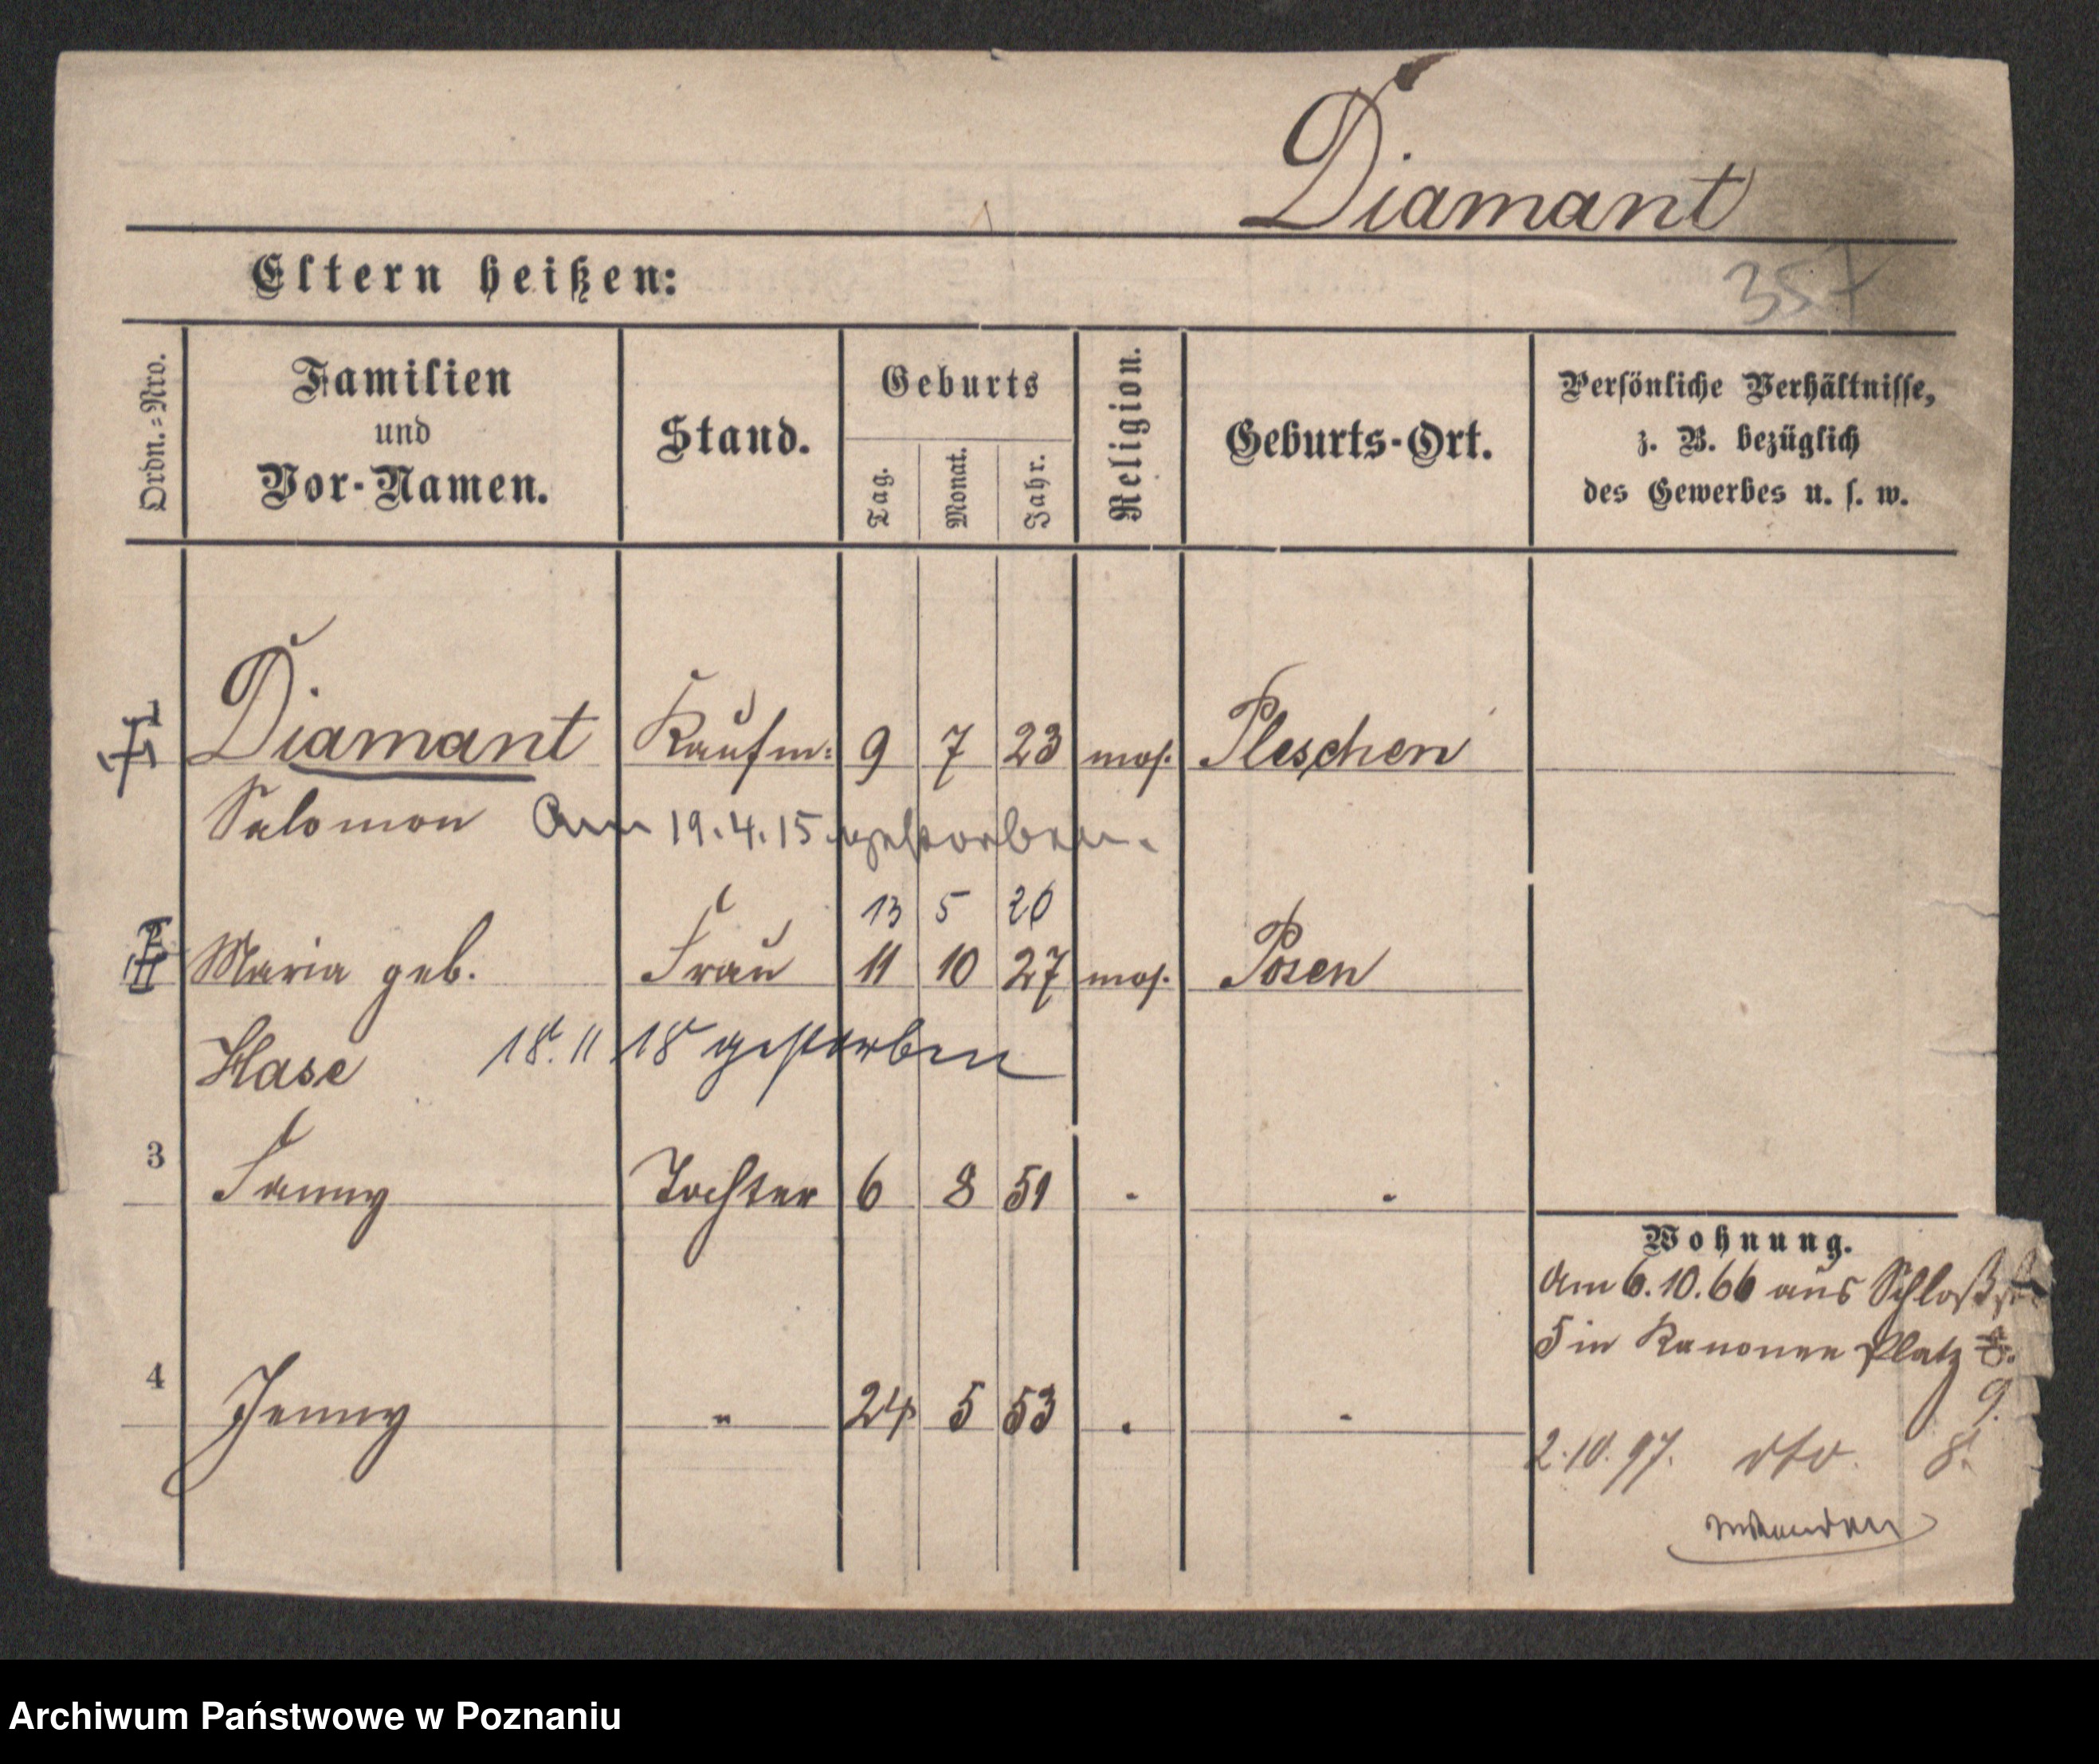 Diamant
Eltern heißen:
357
Ordn.=Nro.
Familien
und
Vor-Namen.
Stand.
Geburts
Tag.
Monat.
Jahr.
Religion.
Geburts-Ort.
Persönliche Verhältnisse,
z. B. bezüglich
des Gewerbes u. s. w.
Diamant Kaufm: 9 7 23 mos. Pleschen
Salomon Am 19.4.15 gestorben.
13 5 20
Maria geb. Frau 11 10 27 mos. Posen
Hase 18. 11 18 gestorben
3 Fanny Tochter 6 8 51 " "
4 Jenny " 24 5 53 " "
Wohnung.
Am 6.10.66 aus Schloßstr
5 in Kanonen Platz
9.
2.10.97. dto. 8.
Archiwum Państwowe w Poznaniu